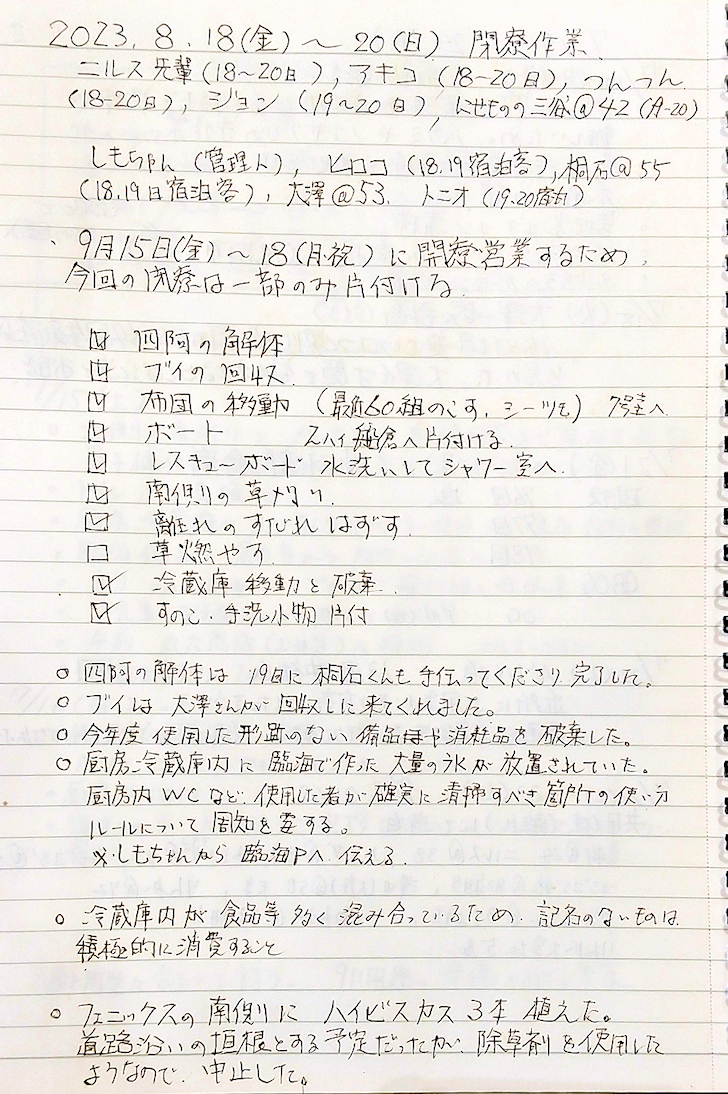 2023. 8. 18(金)～20(日) 閉寮作業
ニルス先輩(18～20日), アキコ(18-20日), つんつん
(18-20日), ジョン(19～20日), にせものの三谷@42(19-20)
しもちゃん(管理人), ヒロコ(18.19宿泊客), 桐石@55
(18.19日宿泊客), 大澤@53. トニオ(19.20宿泊)
・9月15日(金)～18(月・祝)に開寮営業するため,
今回の閉寮は一部のみ片付ける.
☑ 四阿の解体
☑ ブイの回収
☑ 布団の移動 (最低60組のこす, シーツも) 7号室へ
☑ ボート 艇倉へ片付ける.
☑ レスキューボード 水洗いしてシャワー室へ.
☑ 南側の草刈り.
☑ 離れのすだれはずす.
☐ 草燃やす
☑ 冷蔵庫 移動と破棄.
☑ すのこ・手洗小物 片付
○ 四阿の解体は 19日に 桐石くんも手伝ってくださり完了した。
○ ブイは 大澤さんが 回収しに来てくれました。
○ 今年度 使用した形跡のない 備品や消耗品を 破棄した。
○ 厨房冷蔵庫内に 臨海で作った 大量の氷が 放置されていた。
厨房内 WCなど, 使用した者が 確実に清掃すべき箇所の使い方
ルールについて 周知を要する。
※しもちゃんから 臨海Pへ 伝える.
○ 冷蔵庫内が 食品等多く 混み合っているため. 記名のないものは
積極的に消費すること
○ フェニックスの南側に ハイビスカス 3本 植えた。
道路沿いの垣根とする予定だったが, 除草剤を使用した
ようなので, 中止した。